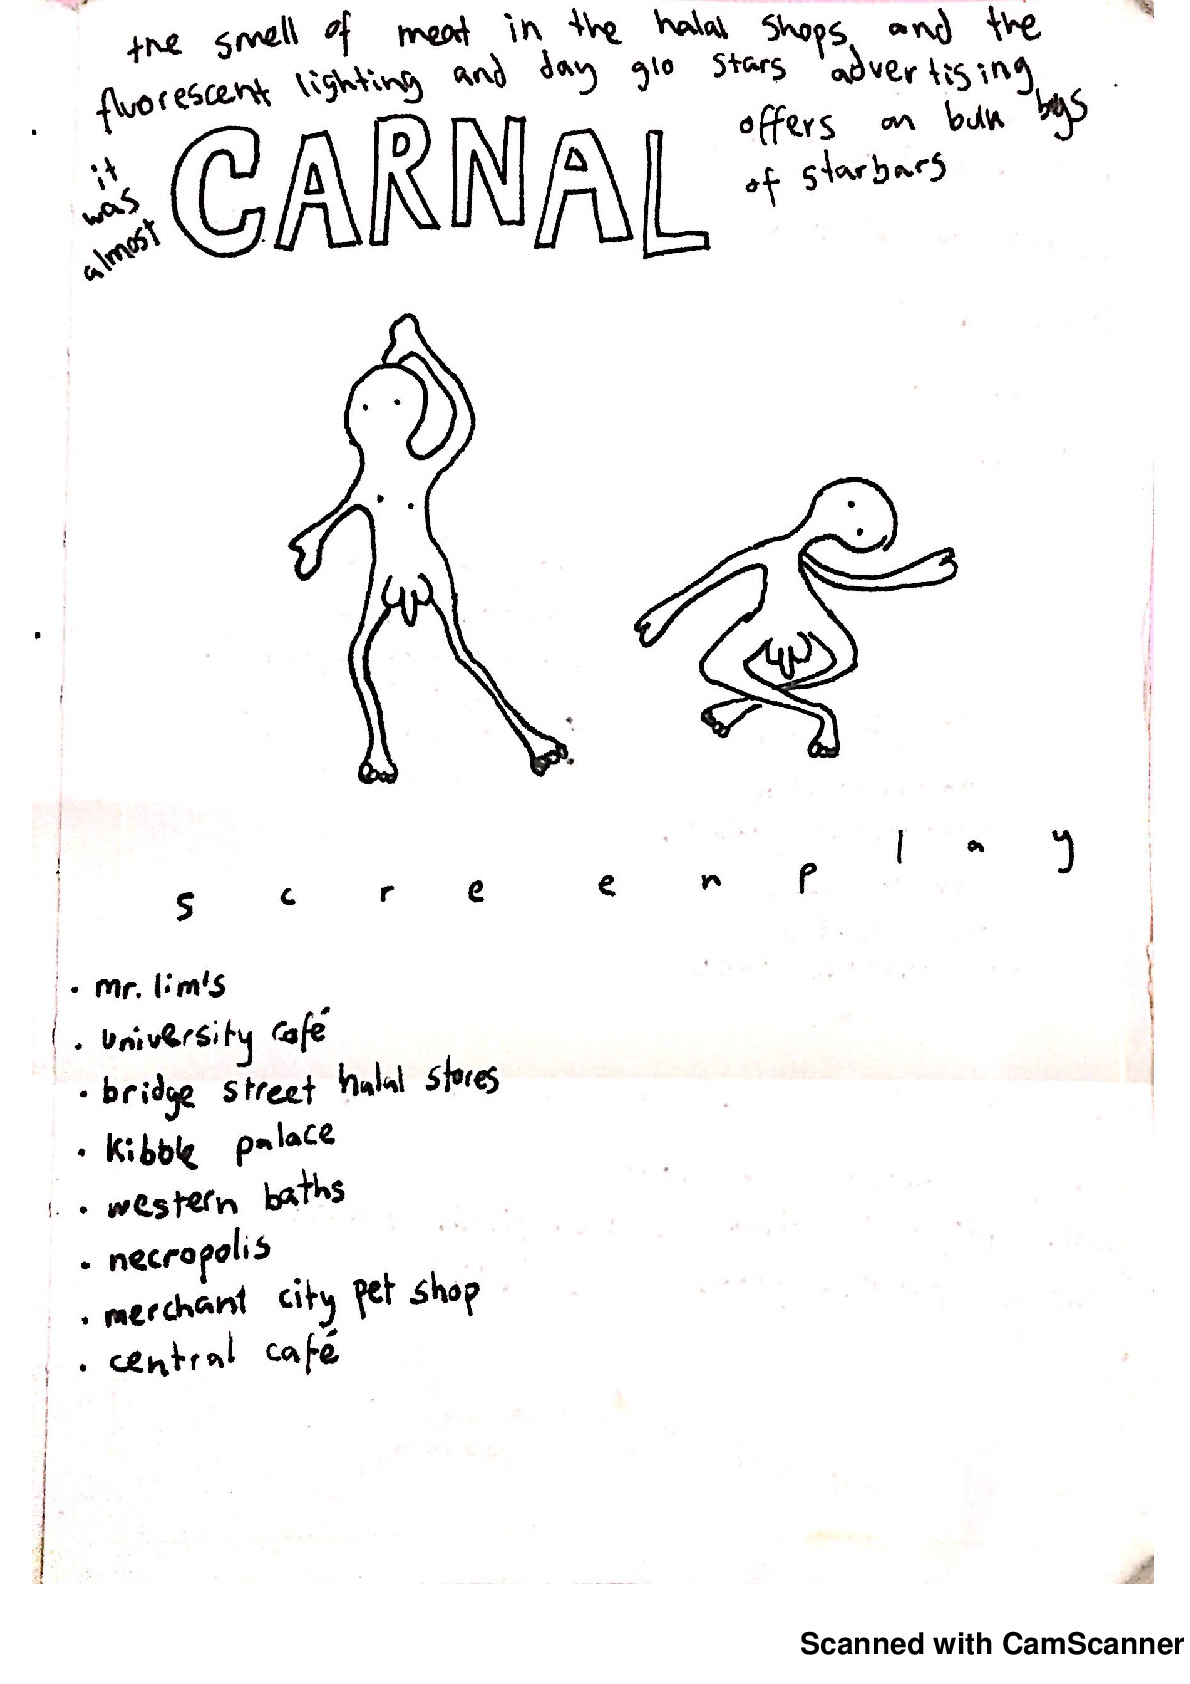 the smell of meat in the halal shops and the
fluorescent lighting and day glo stars advertising
offers on bulk bgs
of starbars
it
was
almost
CARNAL
screenplay
· mr. lim's
· university café
· bridge street halal stores
· kibble palace
· western baths
· necropolis
· merchant city pet shop
· central café
Scanned with CamScanner